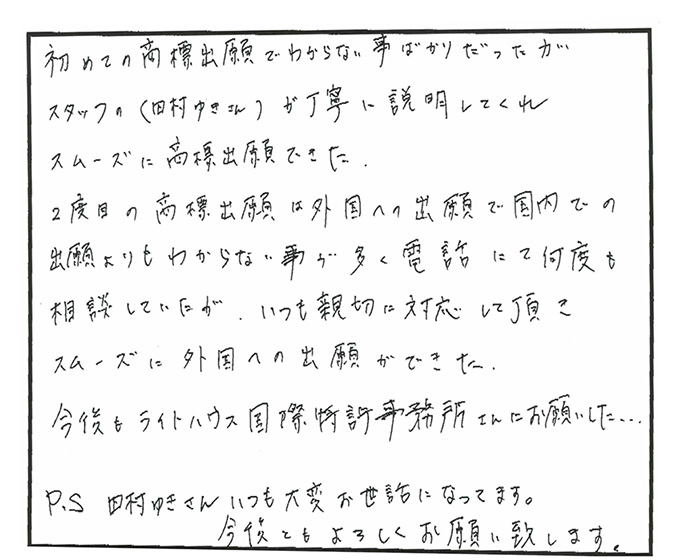 初めての商標出願でわからない事ばかりだったが
スタッフの（田村ゆきさん）が丁寧に説明してくれ
スムーズに商標出願できた.
2度目の商標出願は外国への出願で国内での
出願よりもわからない事が多く電話にて何度も
相談していたが.いつも親切に対応して頂き
スムーズに外国への出願ができた.
今後もライトハウス国際特許事務所さんにお願いした…
P.S 田村ゆきさんいつも大変お世話になってます。
今後ともよろしくお願い致します。